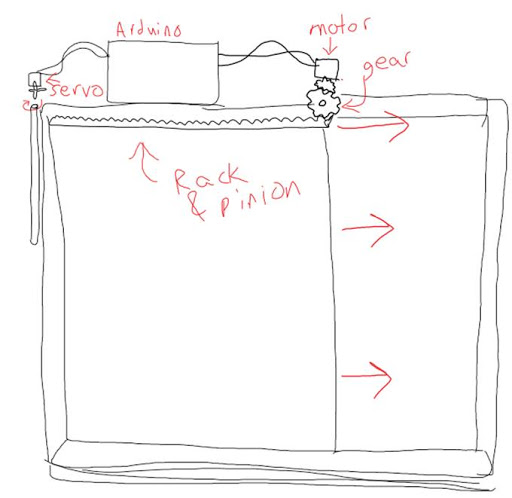 Arduino
motor
gear
servo
Rack
& pinion